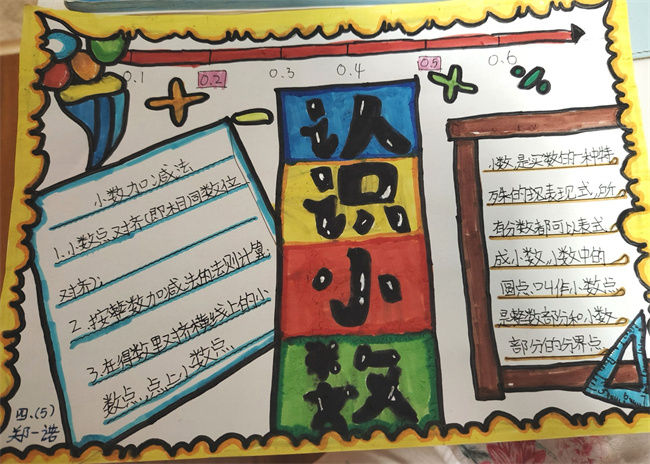 0.1 0.2 0.3 0.4 0.5 0.6
认
识
小
数
小数加减法
1.小数点对齐(即相同数位
对齐);
2.按整数加减法的法则计算.
3.在得数里对齐横线上的小
数点,点上小数点.
小数,是实数的一种特
殊的表现形式,所
有分数都可以表式
成小数,小数中的
圆点叫作小数点
是整数部分和小数
部分的分界点.
四.(5)
郑一诺